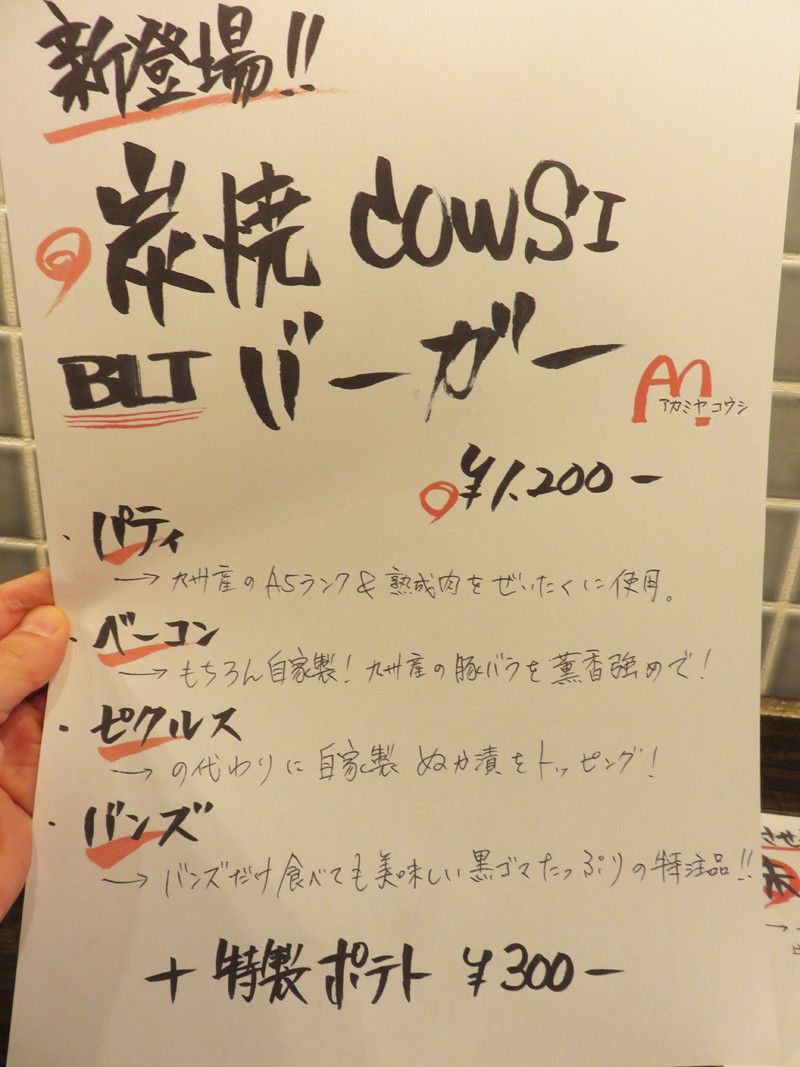 新登場!!
炭焼 COWSI
BLT バーガー
アカミヤ コウシ
¥1.200-
・パティ
→ 九州産のA5ランク&熟成肉をぜいたくに使用。
・ベーコン
→ もちろん自家製! 九州産の豚バラを薫香強めで!
・ピクルス
→ の代わりに自家製 ぬか漬をトッピング!
・バンズ
→ バンズだけ食べても美味しい黒ゴマたっぷりの特注品!!
+ 特製ポテト ¥300-
させ